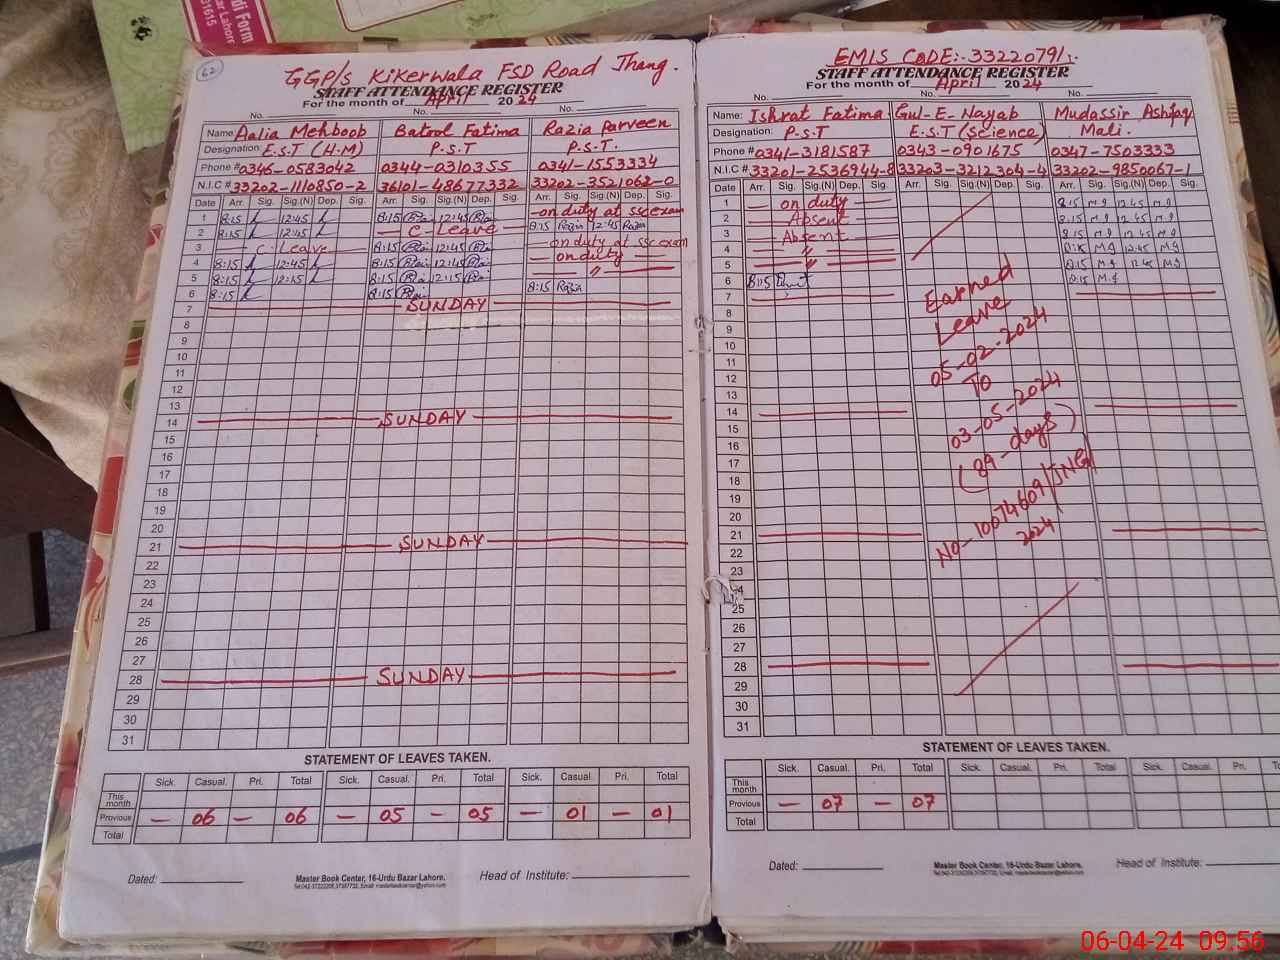 di Form
zar Lahore
91615
62
GGP/s Kikerwala FSD Road Jhang.
STAFF ATTENDANCE REGISTER
For the month of April 2024
No. No. No.
Name: Aalia Mehboob Batool Fatima Razia Parveen
Designation: E.S.T (H.M) P.S.T P.S.T.
Phone # 0346-0583042 0344-0310355 0341-1553334
N.I.C # 33202-1110850-2 36101-48677332 33202-3521062-0
Date Arr. Sig. Sig.(N) Dep. Sig. Arr. Sig. Sig.(N) Dep. Sig. Arr. Sig. Sig.(N) Dep. Sig.
1 8:15 12:45 8:15 12:45 on duty at ssc exam
2 8:15 12:45 C-Leave 8:15 Razia 12:45 Razia
3 C-Leave 8:15 12:45 on duty at ssc exam
4 8:15 12:45 8:15 12:45 on duty
5 8:15 12:15 8:15 12:15 "
6 8:15 8:15 8:15 Razia
7 SUNDAY
8
9
10
11
12
13
14 SUNDAY
15
16
17
18
19
20
21 SUNDAY
22
23
24
25
26
27
28 SUNDAY
29
30
31
STATEMENT OF LEAVES TAKEN.
Sick. Casual. Pri. Total Sick. Casual. Pri. Total Sick. Casual Pri. Total
This month
Previous — 06 — 06 — 05 — 05 — 01 — 01
Total
Dated: Master Book Center, 16-Urdu Bazar Lahore. Head of Institute:
EMIS CODE:-33220791:
STAFF ATTENDANCE REGISTER
For the month of April 2024
No. No. No.
Name: Ishrat Fatima Gul-E-Nayab Mudassir Ashfaq
Designation: P.S.T E.S.T (Science) Mali.
Phone # 0341-3181587 0343-0901675 0347-7503333
N.I.C # 33201-2536944-8 33203-3212304-4 33202-9850067-1
Date Arr. Sig. Sig.(N) Dep. Sig. Arr. Sig. Sig.(N) Dep. Sig. Arr. Sig. Sig.(N) Dep. Sig.
1 on duty 8:15 12:45
2 Absent 8:15 12:45
3 Absent 8:15 12:45
4 " 8:15 12:45
5 " 8:15 12:45
6 8:15 8:15
7
8 Earned
9 Leave
10
11 05-02-2024
12 TO
13
14 03-05-2024
15
16 (89-days)
17
18
19
20 No-10074609/JNG/
21 2024
22
23
24
25
26
27
28
29
30
31
STATEMENT OF LEAVES TAKEN.
Sick. Casual. Pri. Total Sick. Casual. Pri. Total Sick. Casual. Pri.
This month
Previous — 07 — 07
Total
Dated: Master Book Center, 16-Urdu Bazar Lahore. Head of Institute:
06-04-24 09:56